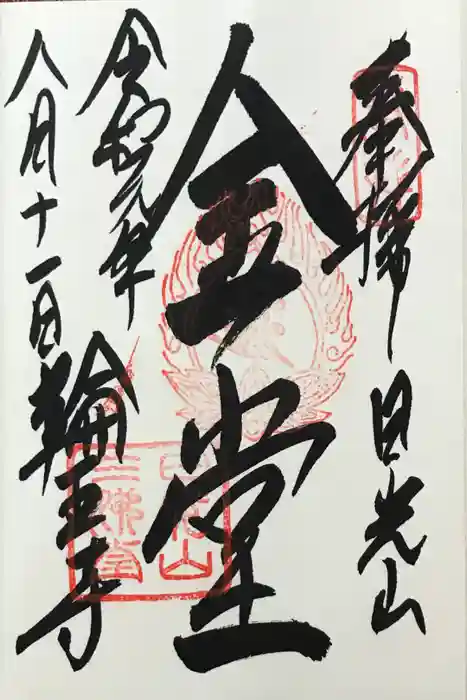 奉拝 日光山
金堂
令和元年
八月十一日
輪王寺
日光山
三佛堂